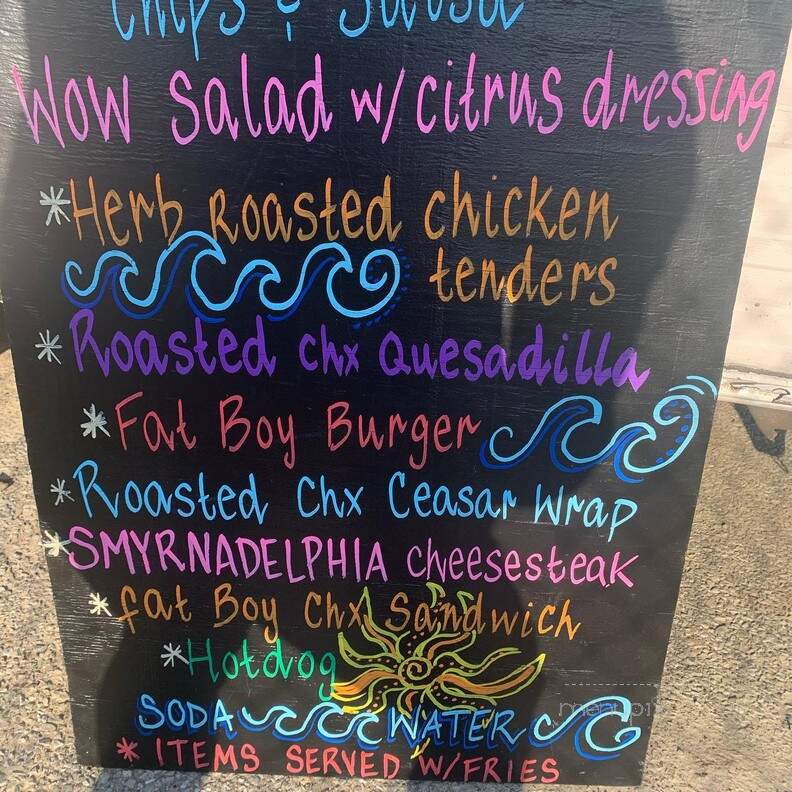 Chips & Salsa
Wow Salad w/ citrus dressing
*Herb Roasted chicken
tenders
*Roasted chx Quesadilla
*Fat Boy Burger
*Roasted Chx Ceasar Wrap
*SMYRNADELPHIA cheesesteak
*fat Boy Chx Sandwich
*Hotdog
SODA WATER
* ITEMS SERVED W/FRIES